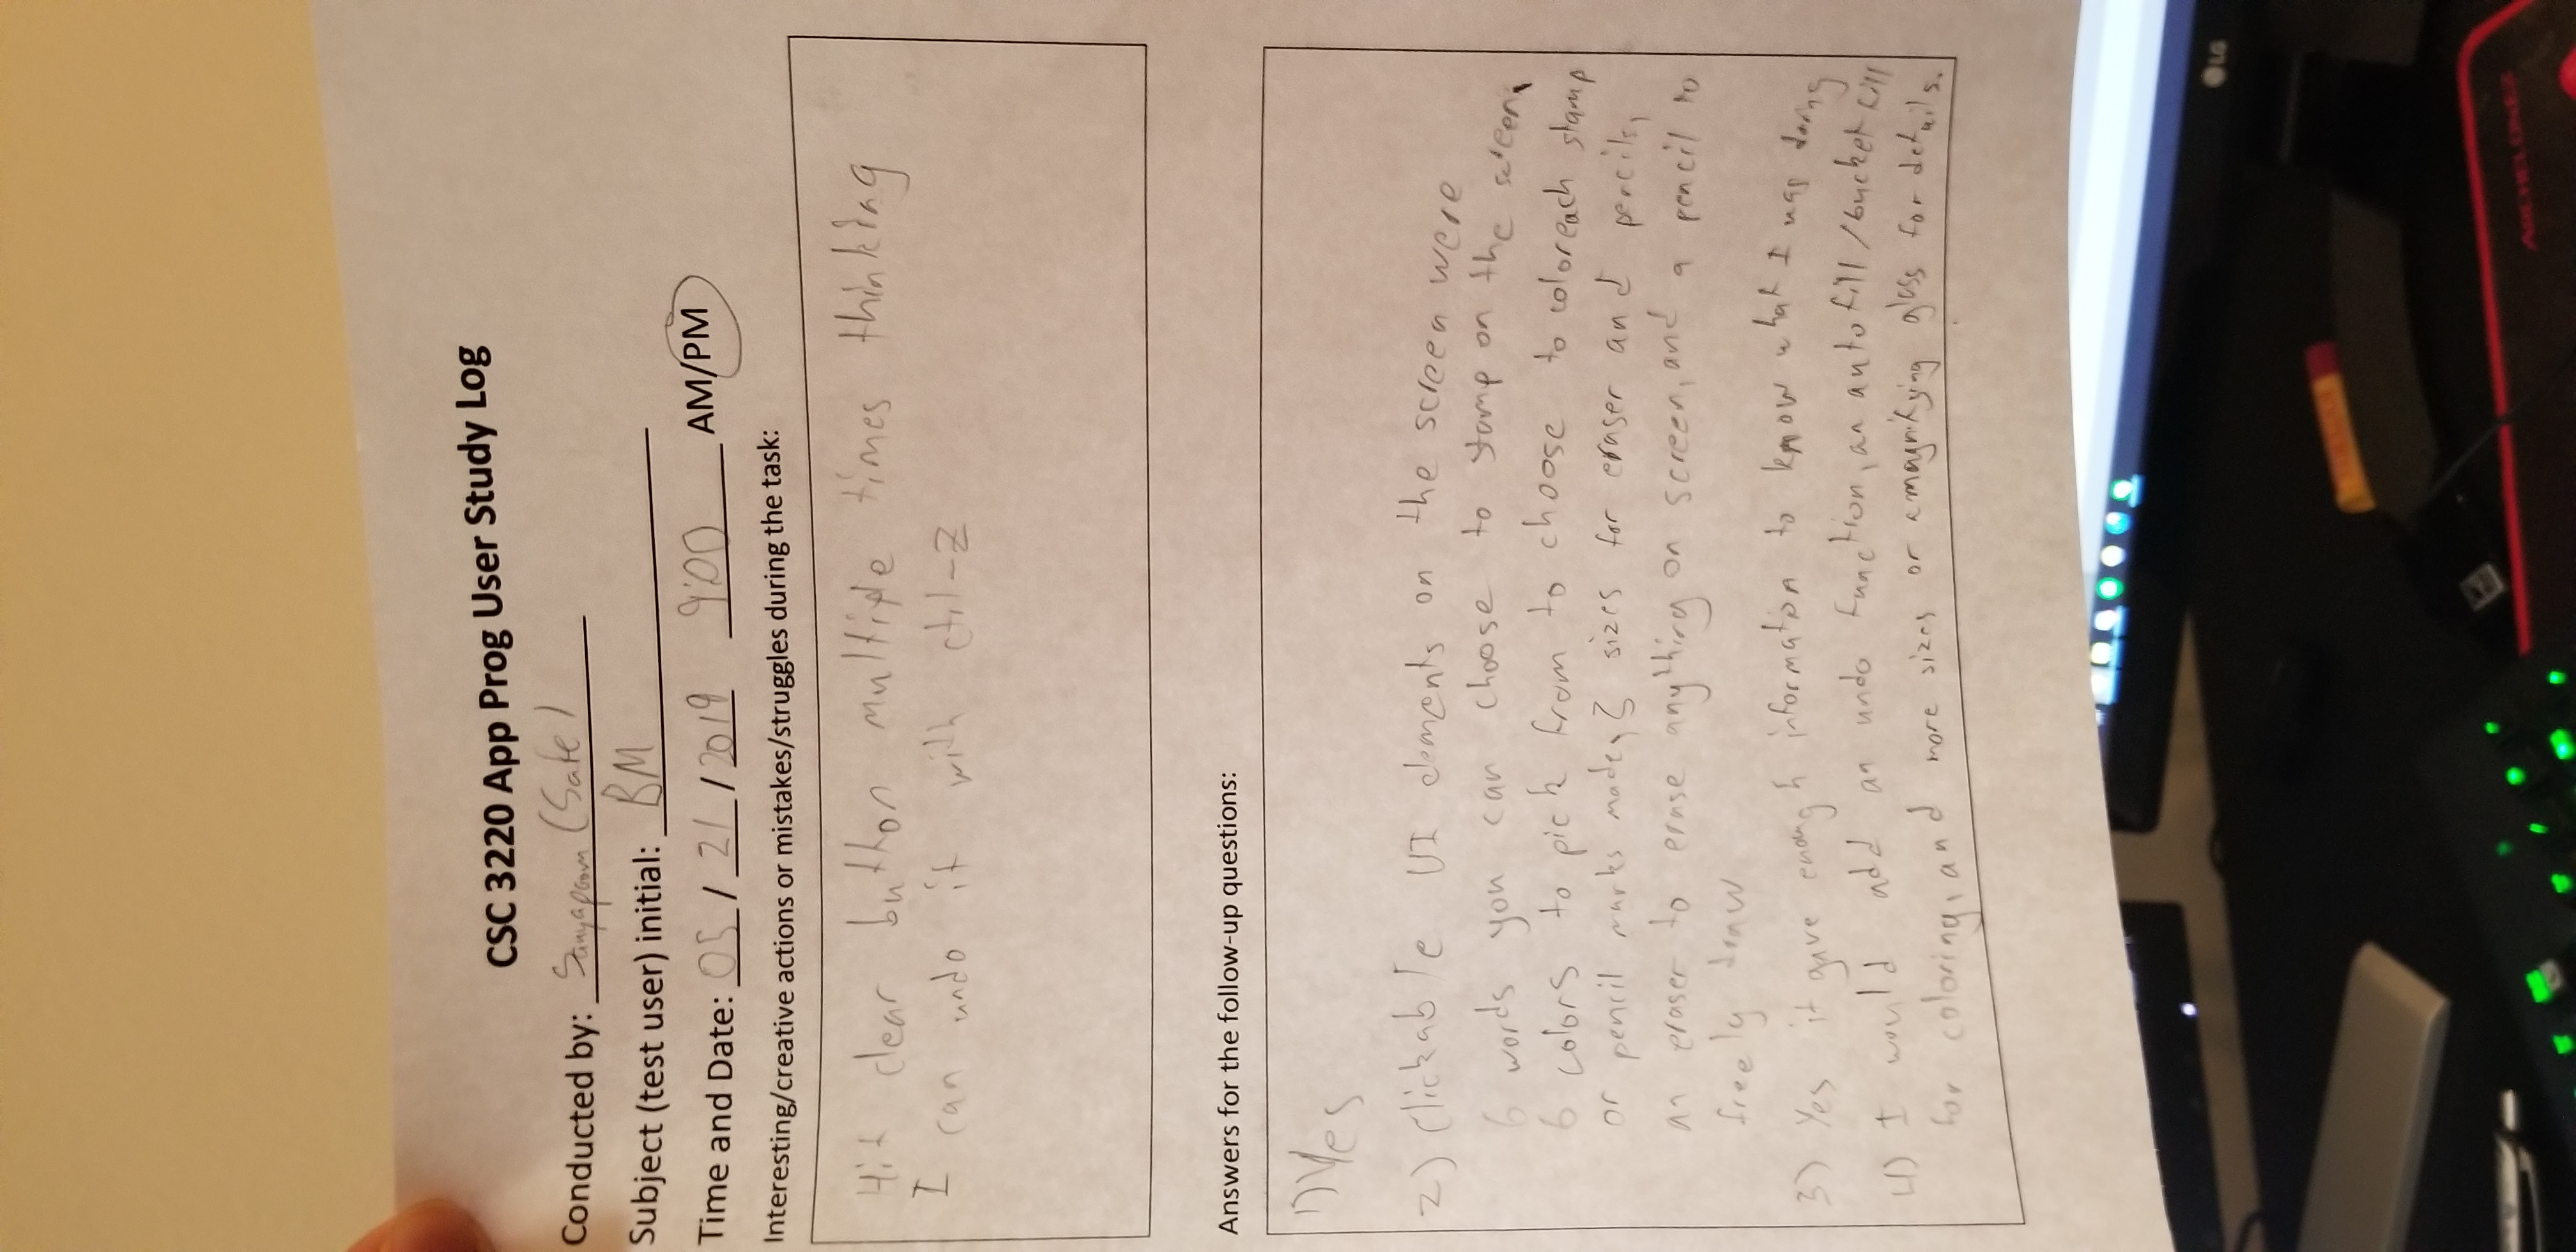 CSC 3220 App Prog User Study Log
Conducted by: Sanyapoom (Safe)
Subject (test user) initial: BM
Time and Date: 05 / 21 / 2019 9:00 AM/PM
Interesting/creative actions or mistakes/struggles during the task:
Hit clear button multiple times thinking
I can undo it with ctrl-z
Answers for the follow-up questions:
1) Yes
2) Clickable UI elements on the screen were
6 words you can choose to stamp on the screen,
6 colors to pick from to choose to color each stamp
or pencil marks made, 3 sizes for eraser and pencils,
an eraser to erase anything on screen, and a pencil to
freely draw
3) Yes it gave enough information to know what I was doing
4) I would add an undo function, an autofill/bucket fill
for coloring, and more sizes or a magnifying glass for details.
LG